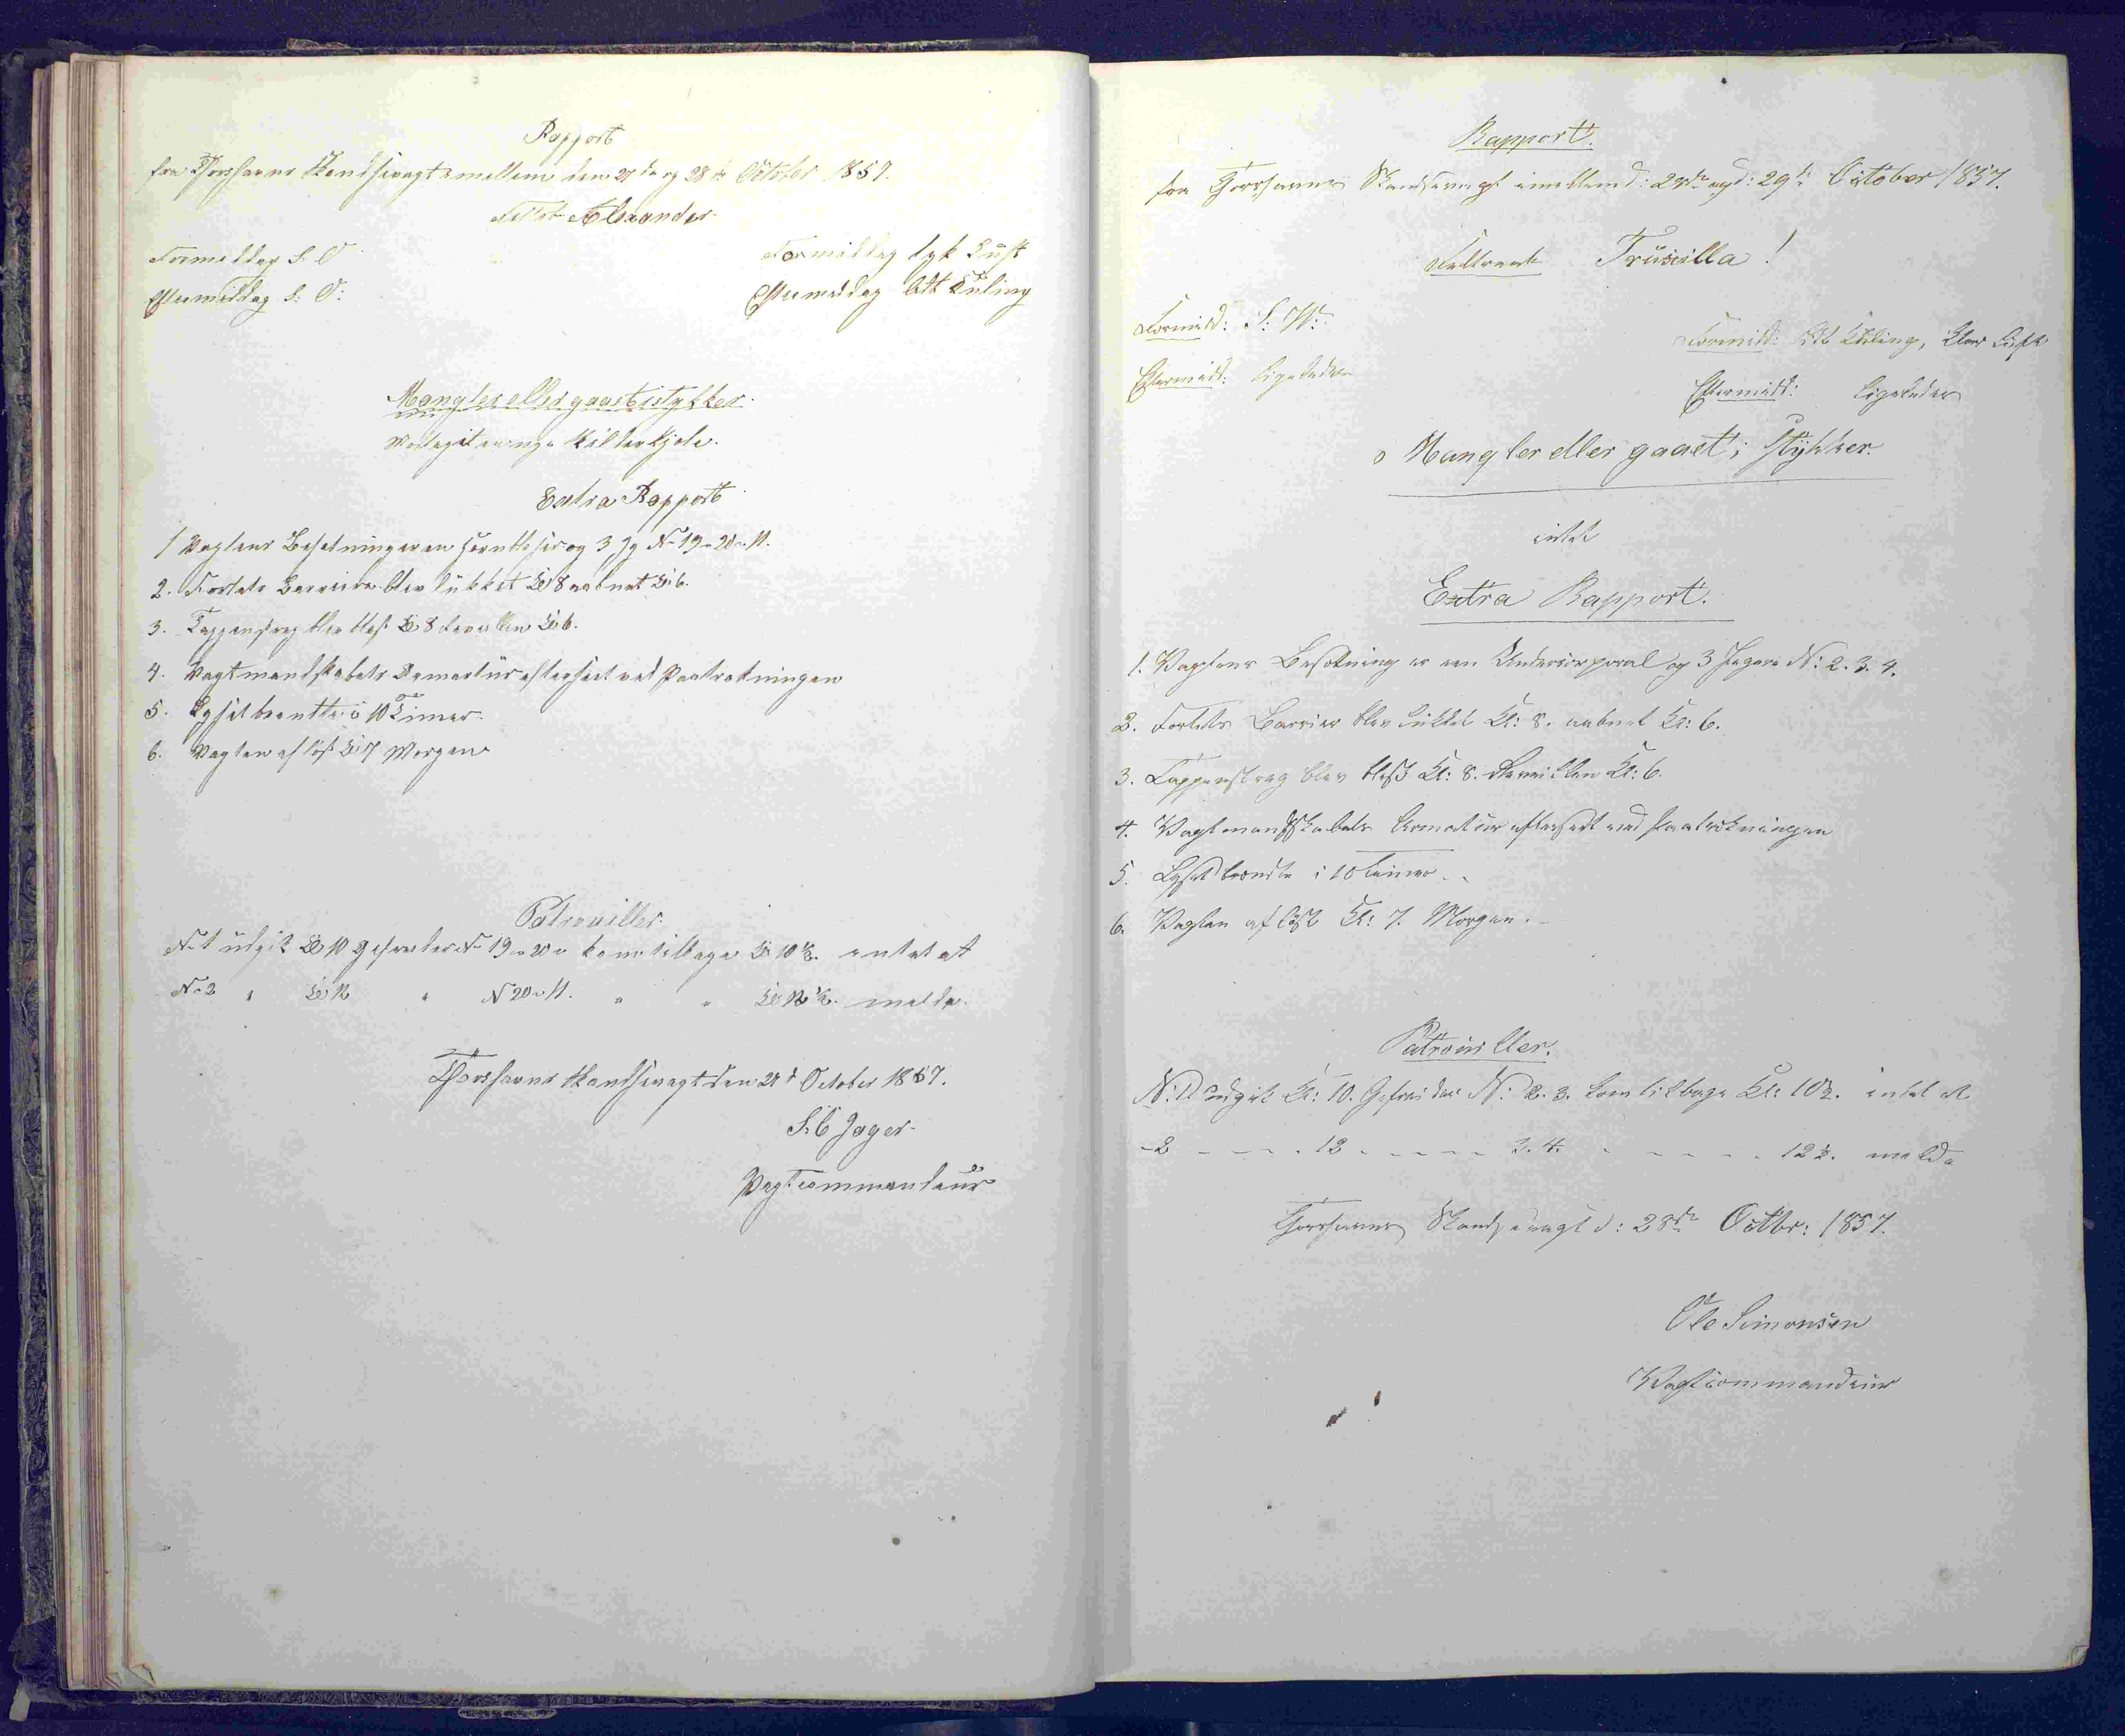 Rapport
fra Thorshavns Skandsevagt imellem den 27de og 28de October 1857.
Feltraab Alexander
Formiddag S. O
Eftermiddag S: O:
Formiddag tyk Luft
Eftermiddag lidt Kuling
Mangler eller gaaet i stykker
Extra Rapport
1 Vagtens Besætning er en og 3 Jg No 19. 20. 11.
2. Fortets Barriere blev lukket Kl 8 aabnet Kl 6.
3. Tappenstreg blev blæst Kl 8 Reveillen Kl 6.
4. Vagtmandskabets Armartur efterseet ved Paatrædningen
5. Lyset brændte i 10 Timer.
6. Vagten afløst Kl 7 Morgen
Patrouiller.
No 1 udgik Kl 10 Gefreider No 19 20 kom tilbage Kl 10½. intet at
No 2 " Kl 12 " N 20 11. " " Kl 12½. melde.
Thorshavns Skandsevagt den 27d October 1857.
S. C Jager
Vagtcommandeur
Rapport.
fra Thorshavns Skandsevagt imellem d: 28de og d: 29de October 1857.
Feltraab Truscilla!
Formidd: S: W:
Eftermidd: ligeledes
Formidd: lidt Kuling, klar Luft
Eftermidd: ligeledes
Mangler eller gaaet i stykker.
intet
Extra Rapport.
1. Vagtens Besætning er een Undercorporal og 3 Jægere N: 2. 3. 4.
2. Fortets Barrier blev lukket Kl: 8. aabnet Kl: 6.
3. Tappenstreg blev blæst Kl: 8. Reveillen Kl: 6.
4. Vagtmandskabets Armatur efterseet ved Paatrædningen
5. Lyset brændte i 10 Timer.
6. Vagten afløst Kl: 7. Morgen.
Patrouiller.
N: 1 udgik Kl: 10. Gefreider N: 2. 3. kom tilbage Kl: 10½. intet at
- 2 - - - - 12 - - - - - 3. 4. - - - - - 12½. melde
Thorshavns Skandsevagt d: 28de Octbr: 1857.
Ole Simonsen
Vagtcommandeur